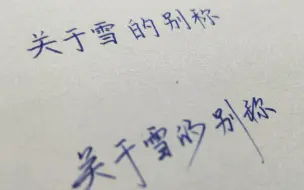 关于雪的别称
关于雪的别称